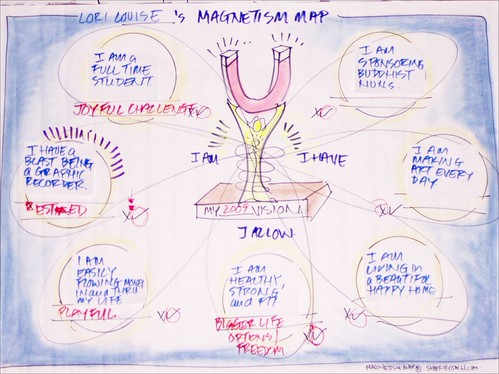 LORI LOUISE 'S MAGNETISM MAP
I AM A
FULL TIME
STUDENT
JOYFUL CHALLENGE
I AM
SPONSORING
BUDDHIST
NUNS.
I HAVE A
BLAST BEING
A GRAPHIC
RECORDER.
I AM
I HAVE
I AM
MAKING
ART EVERY
DAY
MY 2009 VISION
I ALLOW
I AM
EASILY
FLOWING MONEY
IN and THRU
MY LIFE
PLAYFUL
I AM
HEALTHY,
STRONG,
and FIT
BIGGER LIFE
OPTIONS/
FREEDOM
I AM
LIVING IN
A BEAUTIFUL
HAPPY HOME
MAGNETISM MAP ©